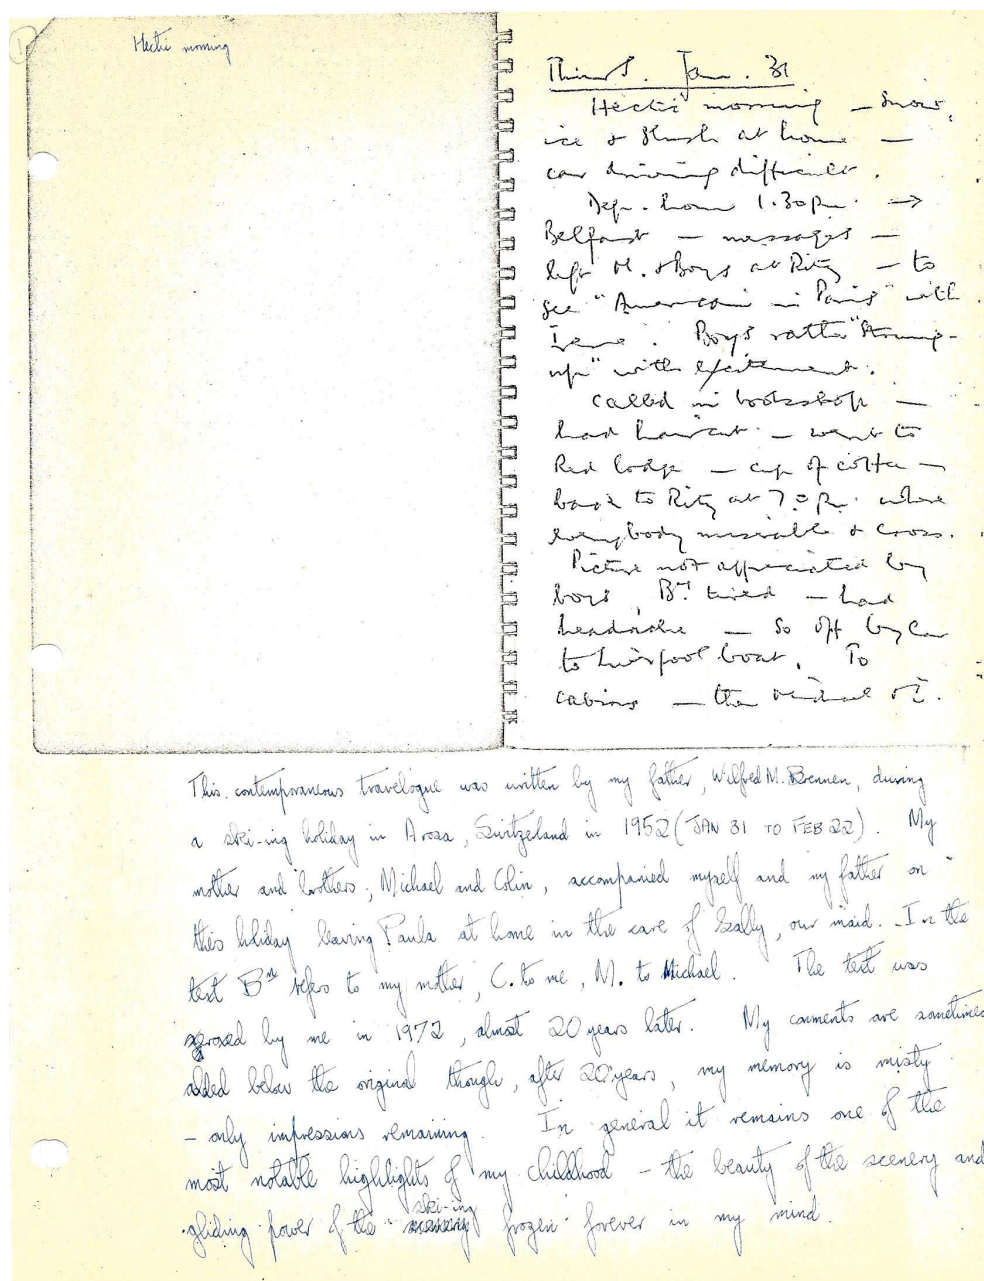 1
Hectic morning
Thurs. Jan. 31
Hectic morning – snow,
ice & slush at home –
car driving difficult.
Dep. home 1.30 p.m. →
Belfast – messages –
left M. & Boys at Ritz – to
see "American in Paris" with
Irene. Boys rather "strung-
up" with excitement.
Called in bookshop –
had haircut – went to
Red Lodge – cup of coffee –
back to Ritz at 7.0 p.m. where
everybody miserable & cross.
Picture not appreciated by
boys, Bm tired – had
headache – So off by car
to Liverpool boat. To
cabins – then
This contemporaneous travelogue was written by my father, Wilfred M. Brennen, during
a ski-ing holiday in Arosa, Switzerland in 1952 (JAN 31 TO FEB 22). My
mother and brothers, Michael and Colin, accompanied myself and my father on
this holiday leaving Paula at home in the care of Sally, our maid. In the
text Bm refers to my mother, C. to me, M. to Michael. The text was
xeroxed by me in 1972, almost 20 years later. My comments are sometimes
added below the original though, after 20 years, my memory is misty
– only impressions remaining. In general it remains one of the
most notable highlights of my childhood – the beauty of the scenery and
gliding power of the ski-ing frozen forever in my mind.